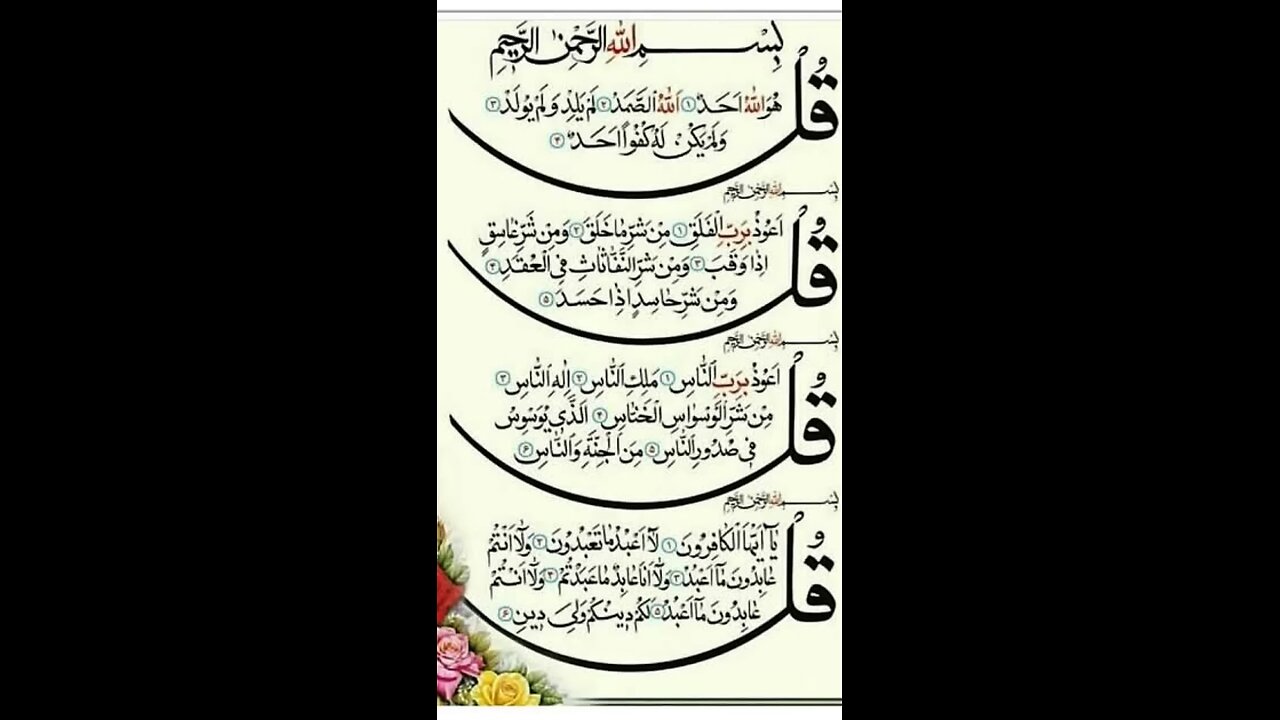 بِسْمِ اللهِ الرَّحْمٰنِ الرَّحِيمِ
قُلْ هُوَ اللهُ اَحَدٌ ۱ اَللهُ الصَّمَدُ ۲ لَمْ يَلِدْ وَ لَمْ يُولَدْ ۳
وَلَمْ يَكُنْ لَهُ كُفُوًا اَحَدٌ ۴
بِسْمِ اللهِ الرَّحْمٰنِ الرَّحِيمِ
قُلْ اَعُوذُ بِرَبِّ الْفَلَقِ ۱ مِنْ شَرِّ مَا خَلَقَ ۲ وَمِنْ شَرِّ غَاسِقٍ
اِذَا وَقَبَ ۳ وَمِنْ شَرِّ النَّفَّاثَاتِ فِي الْعُقَدِ ۴
وَمِنْ شَرِّ حَاسِدٍ اِذَا حَسَدَ ۵
بِسْمِ اللهِ الرَّحْمٰنِ الرَّحِيمِ
قُلْ اَعُوذُ بِرَبِّ النَّاسِ ۱ مَلِكِ النَّاسِ ۲ اِلٰهِ النَّاسِ ۳
مِنْ شَرِّ الْوَسْوَاسِ الْخَنَّاسِ ۴ اَلَّذِي يُوَسْوِسُ
فِي صُدُورِ النَّاسِ ۵ مِنَ الْجِنَّةِ وَالنَّاسِ ۶
بِسْمِ اللهِ الرَّحْمٰنِ الرَّحِيمِ
قُلْ يَآ اَيُّهَا الْكَافِرُونَ ۱ لَآ اَعْبُدُ مَا تَعْبُدُونَ ۲ وَلَآ اَنْتُمْ
عَابِدُونَ مَآ اَعْبُدُ ۳ وَلَآ اَنَا عَابِدٌ مَا عَبَدْتُمْ ۴ وَلَآ اَنْتُمْ
عَابِدُونَ مَآ اَعْبُدُ ۵ لَكُمْ دِينُكُمْ وَلِيَ دِينِ ۶